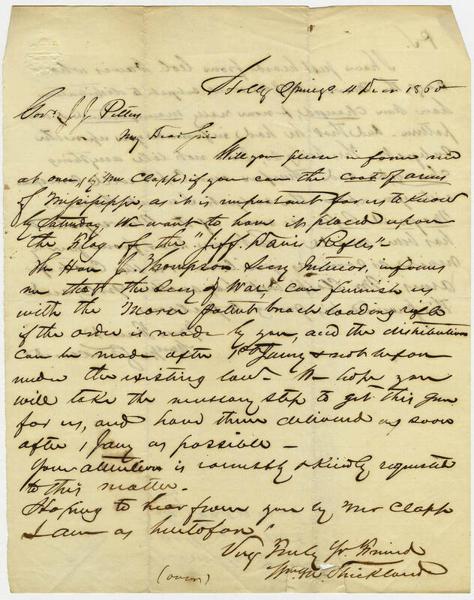 Holly Springs 4 Decr 1860
Govr. J. J. Pettus
My Dear Sir
Will you please inform me
at once, (by Mr Clapp) if you can the coat of arms
of Mississippi, as it is important for us to know
by Saturday. We want to have it placed upon
the flag of the "Jeff. Davis Rifles"
The Hon J. Thompson Secy Interior, informs
me that the Secy of War, can furnish us
with the patent breach loading rifle
if the order is made by you, and the distribution
can be made after 1st Jany & not before
under the existing law - We hope you
will take the necessary step to get this gun
for us, and have them delivered as soon
after 1 Jany as possible -
Your attention is earnestly & kindly requested
to this matter.
Hoping to hear from you by Mr Clapp
I am as heretofore
Very Truly Yr. Friend
(over) Wm. M. Strickland